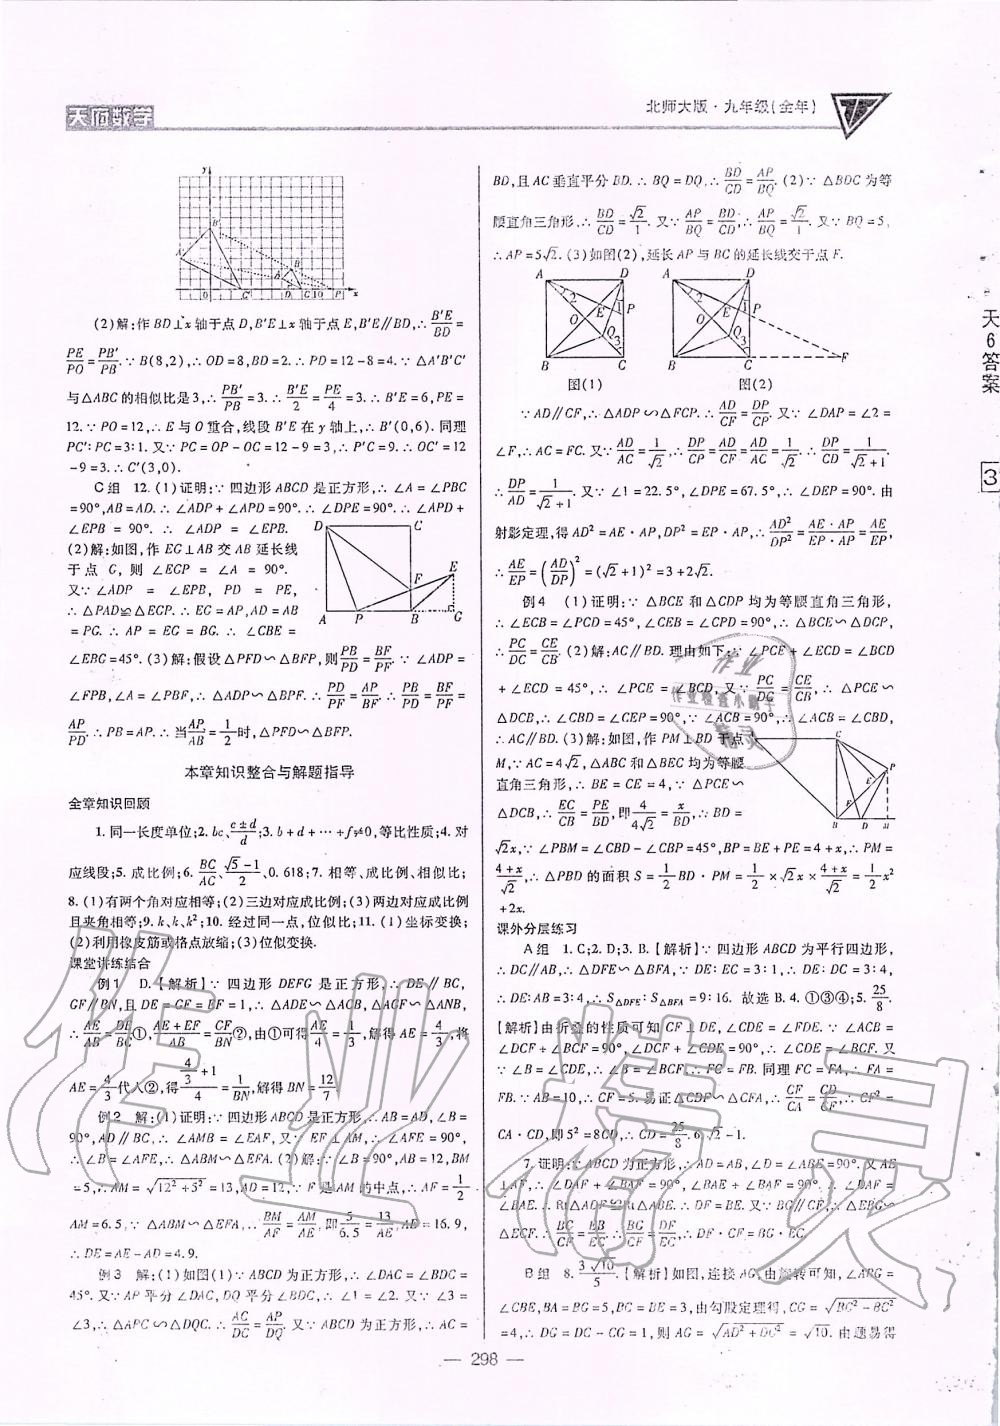 天府数学
北师大版·九年级(全年)
(2)解:作BD⊥x轴于点D,B′E⊥x轴于点E,B′E∥BD,∴B′E/BD=
PE/PO=PB′/PB.∵B(8,2),∴OD=8,BD=2.∴PD=12-8=4.∵△A′B′C′
与△ABC的相似比是3,∴PB′/PB=3.∴B′E/2=PE/4=3.∴B′E=6,PE=
12.∵PO=12,∴E与O重合,线段B′E在y轴上,∴B′(0,6).同理
PC′:PC=3:1.又∵PC=OP-OC=12-9=3,∴P′C=9.∴OC′=12
-9=3.∴C′(3,0).
C组 12.(1)证明:∵四边形ABCD是正方形,∴∠A=∠PBC
=90°,AB=AD.∴∠ADP+∠APD=90°.∴∠DPE=90°.∴∠APD+
∠EPB=90°.∴∠ADP=∠EPB.
(2)解:如图,作EG⊥AB交AB延长线
于点G,则∠EGP=∠A=90°.
又∵∠ADP=∠EPB,PD=PE,
∴△PAD≌△EGP.∴EG=AP,AD=AB
=PG.∴AP=EG=BG.∴∠CBE=
∠EBG=45°.(3)解:假设△PFD∽△BFP,则PB/PD=BF/PF.∵∠ADP=
∠FPB,∠A=∠PBF,∴△ADP∽△BPF.∴PD/PF=AP/BF.∴PB/PD=BF/PF=
AP/PD.∴PB=AP.∴当AP/AB=1/2时,△PFD∽△BFP.
本章知识整合与解题指导
全章知识回顾
1.同一长度单位;2.bc、(c±d)/d;3.b+d+⋯+f≠0,等比性质;4.对
应线段;5.成比例;6.BC/AC、(√5-1)/2、0.618;7.相等、成比例、相似比;
8.(1)有两个角对应相等;(2)三边对应成比例;(3)两边对应成比例
且夹角相等;9.k、k、k²;10.经过同一点,位似比;11.(1)坐标变换;
(2)利用橡皮筋或格点放缩;(3)位似变换.
课堂讲练结合
例1 D.【解析】∵四边形DEFG是正方形,∴DE∥BC,
GF∥BN,且DE=GF=EF=1,∴△ADE∽△ACB,△AGF∽△ANB,
∴AE/AB=DE/BC①,(AE+EF)/AB=GF/BN②,由①可得AE/4=1/3,解得AE=4/3,将
AE=4/3代入②,得(4/3+1)/4=1/BN,解得BN=12/7.
例2 解:(1)证明:∵四边形ABCD是正方形,∴AB=AD,∠B=
90°,AD∥BC,∴∠AMB=∠EAF,又∵EF⊥AM,∴∠AFE=90°,
∴∠B=∠AFE,∴△ABM∽△EFA.(2)解:∵∠B=90°,AB=12,BM
=5,∴AM=√(12²+5²)=13,AD=12,∵F是AM的中点,∴AF=1/2
AM=6.5,∵△ABM∽△EFA,∴BM/AF=AM/AE,即5/6.5=13/AE,AE=16.9,
∴DE=AE-AD=4.9.
例3 解:(1)如图(1)∵ABCD为正方形,∴∠DAC=∠BDC=
45°.又∵AP平分∠DAC,DQ平分∠BDC,∴∠1=∠2.又∵∠3=
∠3,∴△APC∽△DQC.∴AC/DC=AP/DQ.又∵ABCD为正方形,∴AC=
BD,且AC垂直平分BD.∴BQ=DQ,∴BD/CD=AP/BQ.(2)∵△BDC为等
腰直角三角形,∴BD/CD=√2/1.又∵AP/BQ=BD/CD,∴AP/BQ=√2/1.又∵BQ=5,
∴AP=5√2.(3)如图(2),延长AP与BC的延长线交于点F.
图(1)
图(2)
∵AD∥CF,∴△ADP∽△FCP.∴AD/CF=DP/CP.又∵∠DAP=∠2=
∠F,∴AC=FC.又∵AD/AC=1/√2,∴DP/CP=AD/CF=AD/AC=1/√2,∴DP/CD=1/(√2+1).
∴DP/AD=1/(√2+1).又∵∠1=22.5°,∠DPE=67.5°,∴∠DEP=90°.由
射影定理,得AD²=AE·AP,DP²=EP·AP,∴AD²/DP²=AE·AP/EP·AP=AE/EP,
∴AE/EP=(AD/DP)²=(√2+1)²=3+2√2.
例4 (1)证明:∵△BCE和△CDP均为等腰直角三角形,
∴∠ECB=∠PCD=45°,∠CEB=∠CPD=90°,∴△BCE∽△DCP,
∴PC/DC=CE/CB.(2)解:AC∥BD.理由如下:∵∠PCE+∠ECD=∠BCD
+∠ECD=45°,∴∠PCE=∠BCD,又∵PC/DC=CE/CB,∴△PCE∽
△DCB,∴∠CBD=∠CEP=90°,∵∠ACB=90°,∴∠ACB=∠CBD,
∴AC∥BD.(3)解:如图,作PM⊥BD于点
M,∵AC=4√2,△ABC和△BEC均为等腰
直角三角形,∴BE=CE=4,∵△PCE∽
△DCB,∴EC/CB=PE/BD,即4/4√2=x/BD,∴BD=
√2x,∵∠PBM=∠CBD-∠CBP=45°,BP=BE+PE=4+x,∴PM=
(4+x)/√2,∴△PBD的面积S=1/2BD·PM=1/2×√2x×(4+x)/√2=1/2x²
+2x.
课外分层练习
A组 1.C;2.D;3.B.【解析】∵四边形ABCD为平行四边形,
∴DC∥AB,∴△DFE∽△BFA,∵DE:EC=3:1,∴DE:DC=3:4,
∴DE:AB=3:4,∴S△DFE:S△BFA=9:16.故选B.4.①③④;5.25/8.
【解析】由折叠的性质可知CF⊥DE,∠CDE=∠FDE.∵∠ACB=
∠DCF+∠BCF=90°,∠DCF+∠CDE=90°,∴∠CDE=∠BCF.又
∵∠B=∠CDE,∴∠B=∠BCF.∴FC=FB.同理FC=FA,∴FA=
FB.∵AB=10,∴CF=5.易证△CDF∽△CFA,∴CF/CA=CD/CF,∴CF²=
CA·CD,即5²=8CD,∴CD=25/8.6.√2-1.
7.证明:∵ABCD为正方形,∴AD=AB,∠D=∠ABE=90°.又AE
⊥AF,∴∠DAF+∠BAF=90°,∠BAE+∠BAF=90°,∴∠DAF=
∠BAE.∴Rt△ADF≌Rt△ABE.∴DF=BE.又∵BG∥CF,∴△EBG∽
△ECF.∴BG/CF=EB/EC.∴BG/CF=DF/EC,∴DF·CF=BG·EC.
B组 8.3√10/5.【解析】如图,连接AG,由旋转可知,∠ABG=
∠CBE,BA=BG=5,BC=BE=3,由勾股定理得,CG=√(BG²-BC²)
=4,∴DG=DC-CG=1,则AG=√(AD²+DG²)=√10.由题易得
— 298 —
天6答案
3